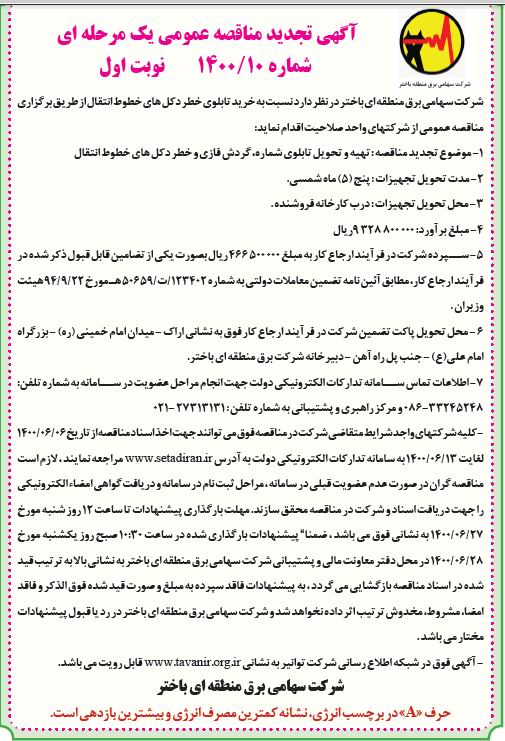 شرکت سهامی برق منطقه ای باختر
آگهی تجدید مناقصه عمومی یک مرحله ای
شماره ۱۴۰۰/۱۰ نوبت اول
شرکت سهامی برق منطقه ای باختر در نظر دارد نسبت به خرید تابلوی خطر دکل های خطوط انتقال از طریق برگزاری
مناقصه عمومی از شرکتهای واجد صلاحیت اقدام نماید:
۱- موضوع تجدید مناقصه : تهیه و تحویل تابلوی شماره، گردش فازی و خطر دکل های خطوط انتقال
۲- مدت تحویل تجهیزات : پنج (۵) ماه شمسی.
۳- محل تحویل تجهیزات : درب کارخانه فروشنده.
۴- مبلغ برآورد: ۹۳۲۸۸۰۰۰۰۰ ریال
۵- سپرده شرکت در فرآیند ارجاع کار به مبلغ ۴۶۶۵۰۰۰۰۰ ریال بصورت یکی از تضامین قابل قبول ذکر شده در
فرآیند ارجاع کار، مطابق آئین نامه تضمین معاملات دولتی به شماره ۱۲۳۴۰۲/ت/۵۰۶۵۹هـ مورخ ۹۴/۹/۲۲ هیئت
وزیران.
۶- محل تحویل پاکت تضمین شرکت در فرآیند ارجاع کار فوق به نشانی اراک - میدان امام خمینی (ره) - بزرگراه
امام علی(ع) - جنب پل راه آهن - دبیرخانه شرکت برق منطقه ای باختر.
۷- اطلاعات تماس سامانه تدارکات الکترونیکی دولت جهت انجام مراحل عضویت در سامانه به شماره تلفن:
۳۳۲۴۵۲۴۸-۰۸۶ و مرکز راهبری و پشتیبانی به شماره تلفن: ۲۷۳۱۳۱۳۱-۰۲۱
-کلیه شرکتهای واجد شرایط متقاضی شرکت در مناقصه فوق می توانند جهت اخذ اسناد مناقصه از تاریخ ۱۴۰۰/۰۶/۰۶
لغایت ۱۴۰۰/۰۶/۱۳ به سامانه تدارکات الکترونیکی دولت به آدرس www.setadiran.ir مراجعه نمایند، لازم است
مناقصه گران در صورت عدم عضویت قبلی در سامانه، مراحل ثبت نام در سامانه و دریافت گواهی امضاء الکترونیکی
را جهت دریافت اسناد و شرکت در مناقصه محقق سازند. مهلت بارگذاری پیشنهادات تا ساعت ۱۲ روز شنبه مورخ
۱۴۰۰/۰۶/۲۷ به نشانی فوق می باشد، ضمنا" پیشنهادات بارگذاری شده در ساعت ۱۰:۳۰ صبح روز یکشنبه مورخ
۱۴۰۰/۰۶/۲۸ در محل دفتر معاونت مالی و پشتیبانی شرکت سهامی برق منطقه ای باختر به نشانی بالا به ترتیب قید
شده در اسناد مناقصه بازگشایی می گردد، به پیشنهادات فاقد سپرده به مبلغ و صورت قید شده فوق الذکر و فاقد
امضا، مشروط، مخدوش ترتیب اثر داده نخواهد شد و شرکت سهامی برق منطقه ای باختر در رد یا قبول پیشنهادات
مختار می باشد.
- آگهی فوق در شبکه اطلاع رسانی شرکت توانیر به نشانی www.tavanir.org.ir قابل رویت می باشد.
شرکت سهامی برق منطقه ای باختر
حرف «A» در برچسب انرژی، نشانه کمترین مصرف انرژی و بیشترین بازدهی است.